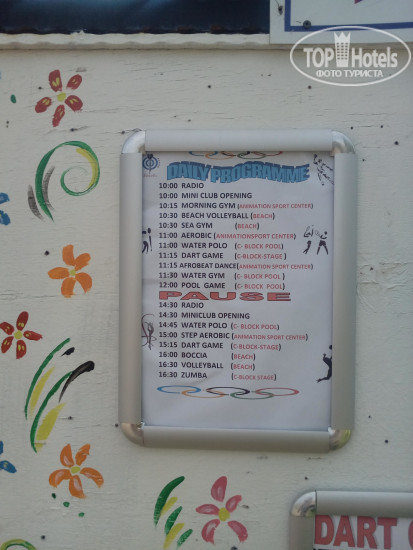 TOP Hotels
ФОТО ТУРИСТА
DAILY PROGRAMME
10:00 RADIO
10:00 MINI CLUB OPENING
10:15 MORNING GYM (ANIMATION SPORT CENTER)
10:30 BEACH VOLLEYBALL (BEACH)
10:30 SEA GYM (BEACH)
11:00 AEROBIC (ANIMATIONSPORT CENTER)
11:00 WATER POLO (C- BLOCK POOL)
11:15 DART GAME (C-BLOCK-STAGE)
11:15 AFROBEAT DANCE(ANIMATION SPORT CENTER)
11:30 WATER GYM (C- BLOCK POOL )
12:00 POOL GAME (C- BLOCK POOL)
PAUSE
14:30 RADIO
14:30 MINICLUB OPENING
14:45 WATER POLO (C- BLOCK POOL)
15:00 STEP AEROBIC (ANIMATION SPORT CENTER)
15:15 DART GAME (C-BLOCK-STAGE)
16:00 BOCCIA (BEACH)
16:30 VOLLEYBALL (BEACH)
16:30 ZUMBA (C-BLOCK STAGE)
DART